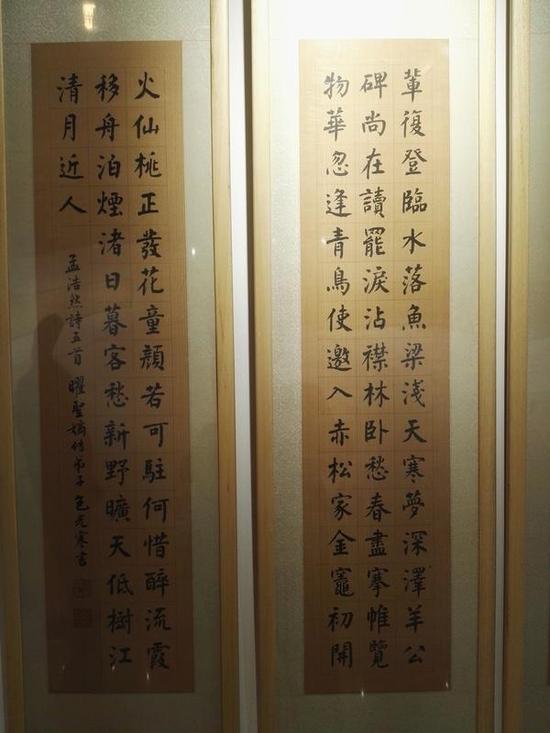 輩復登臨水落魚梁淺天寒夢深澤羊公
碑尚在讀罷淚沾襟林卧愁春盡搴帷覽
物華忽逢青鳥使邀入赤松家金竈初開
火仙桃正發花童顔若可駐何惜醉流霞
移舟泊煙渚日暮客愁新野曠天低樹江
清月近人
孟浩然詩五首 曜聖嫡傳弟子 寒書